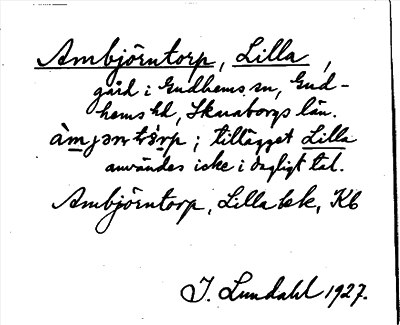 Ambjörntorp, Lilla,
gård i Gudhems sn, Gud-
hems hd, Skaraborgs län.
; tillägget Lilla
användes icke i dagligt tal.
Ambjörntorp, Lilla bk, Kb
I. Lundahl 1927.